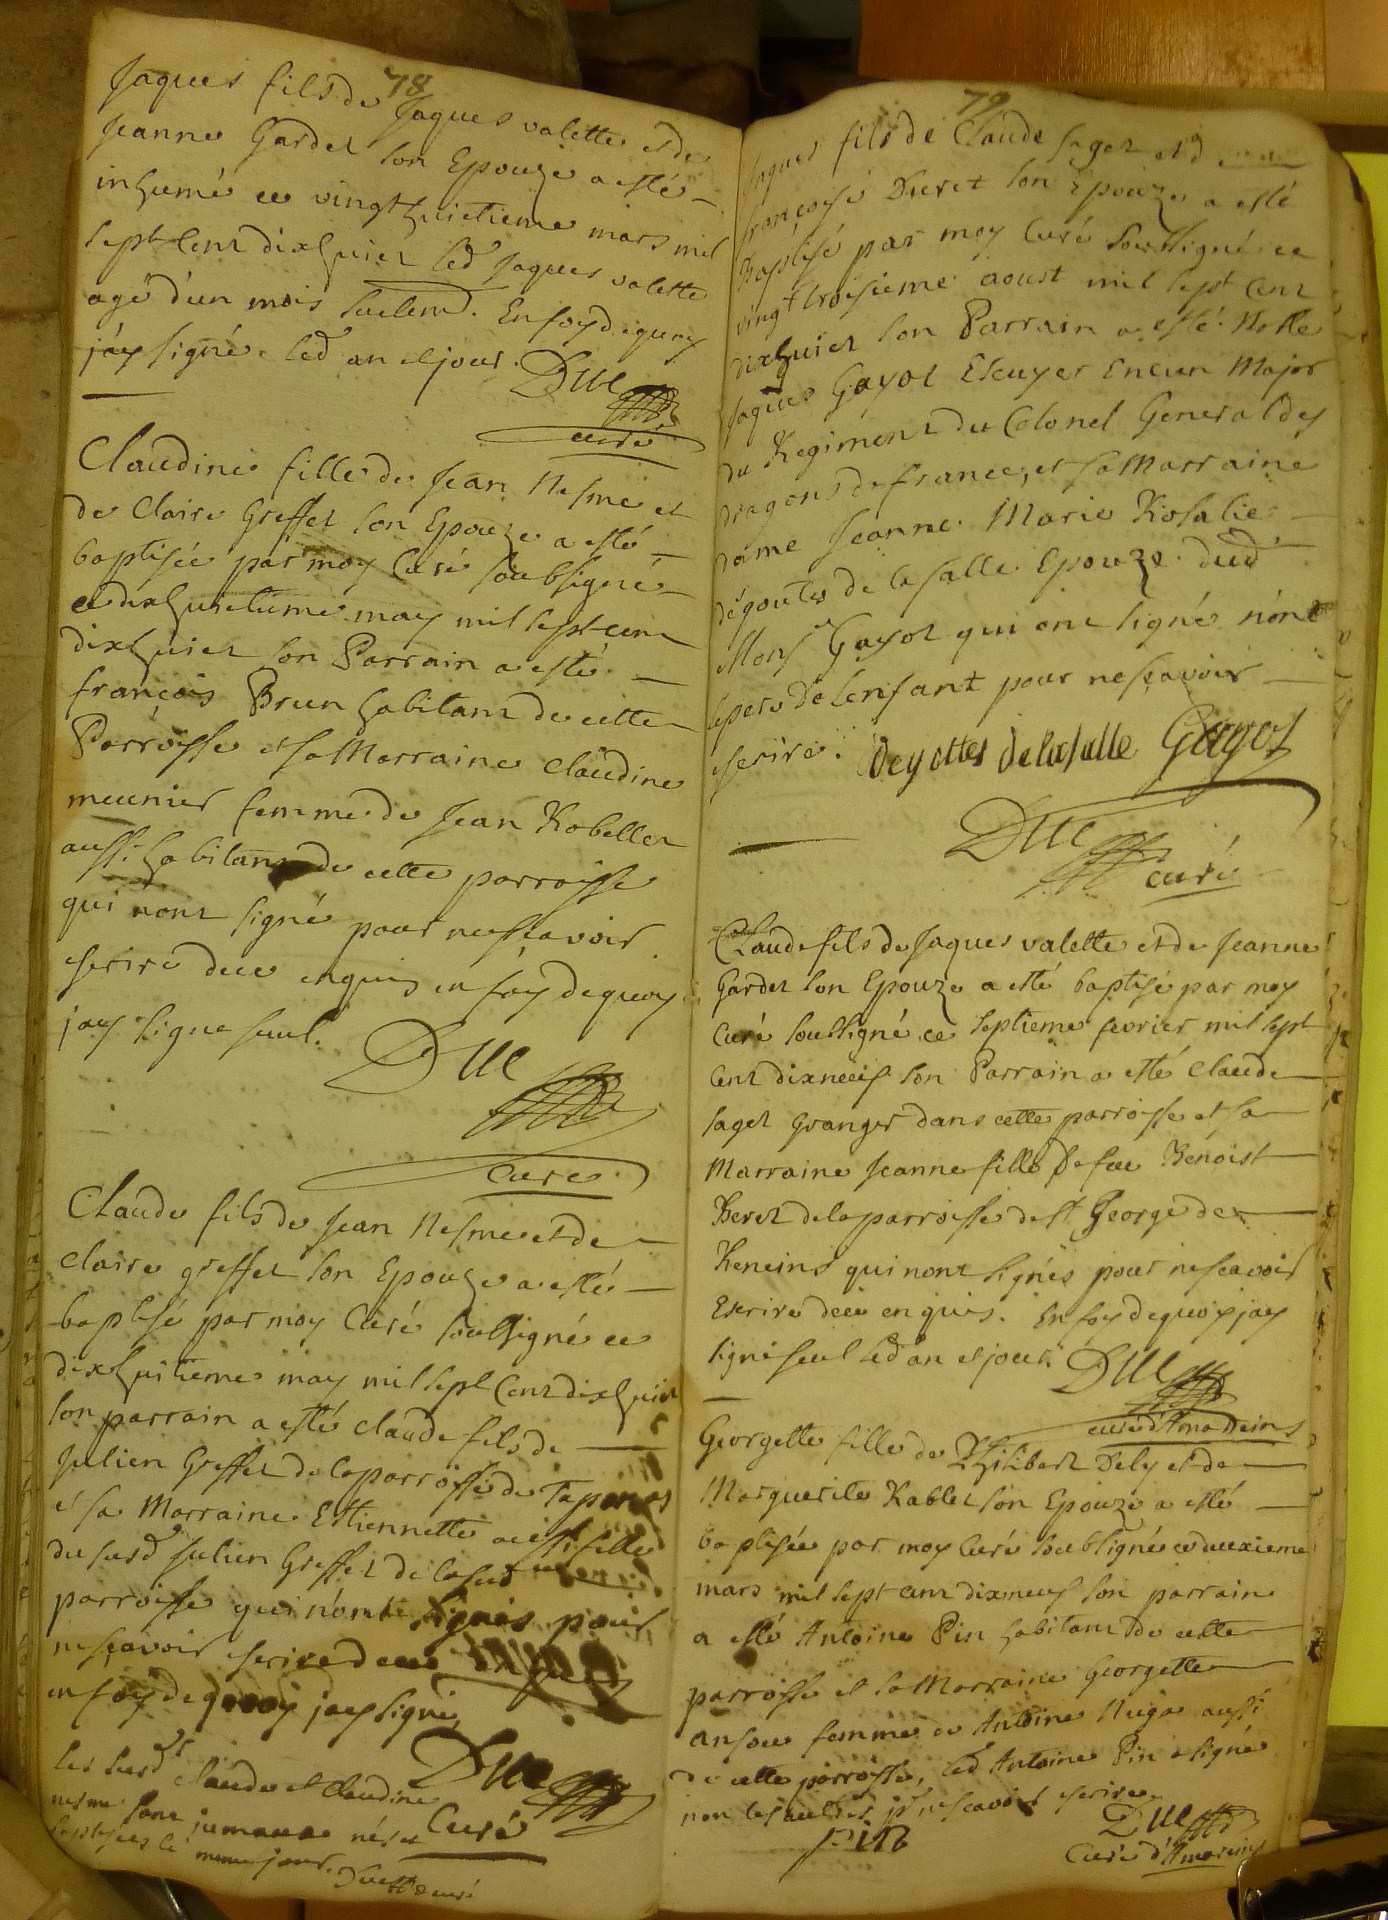 78
Jaques fils de Jaques valette et de
Jeanne Gardet son Epouze a esté
inhumé ce vingt huictieme mars mil
sept cent dixhuict led Jaques valette
agé d'un mois seulem.t En foy de quoy
j'ay signé led an et jour.
Duc
curé
Claudine fille de Jean Nesme et
de Claire Greffet son Epouze a esté
baptisée par moy Curé soubsigné
ce dixhuictieme may mil sept cent
dixhuict son Parrain a esté
françois Brun habitant de cette
Parroisse et sa Marraine Claudine
meunier femme de Jean Robellet
aussi habitant de cette parroisse
qui n'ont signé pour ne sçavoir
escrire de ce enquis en foy de quoy
j'ay signe seul.
Duc
Curé
Claude fils de Jean Nesme et de
Claire greffet son Epouze a esté
baptisé par moy Curé soussigné ce
dixhuitieme may mil sept Cent dixhuit
son parrain a esté claude fils de
Julien Greffet de la parroisse de Taponas
et sa Marraine Estiennette aussi fille
du susd Julien Greffet de la sud
parroisse qui n'ont signés pour
ne sçavoir escrire de ce
en foy de quoy j'ay signé
Duc
Curé
les susd claude et Claudine
nesme sont jumeaux nés et
baptisés le meme jour. Duc curé
79
Jaques fils de Claude saget et d
françoise Duret son Epouze a esté
Baptisé par moy Curé soussigné ce
vingt troisieme aoust mil sept Cent
dixhuict son Parrain a esté Noble
Jaques Gayot Escuyer Major
du Regiment du Colonel General des
dragons de france, et sa Marraine
dame Jeanne Marie Rosalie
dégoutes de la salle Epouze dud
Mons.r Gayot qui ont signé non
le pere de l'enfant pour ne sçavoir
escrire. Degottes Delasalle Gayot
Duc
curé
Claude fils de Jaques valette et de Jeanne
Gardet son Epouze a esté baptisé par moy
Curé soussigné ce septieme fevrier mil sept
Cent dixneuf son Parrain a esté Claude
saget Granger dans cette parroisse et sa
Marraine Jeanne fille de feu Benoist
de la parroisse de S.t George de
Reneins qui n'ont signés pour ne scavoir
Escrire de ce enquis. En foy de quoy j'ay
signé seul led an et jour. Duc
curé d'Amareins
Georgette fille de Philibert Dely et de
Marguerite Rablet son Epouze a esté
baptisée par moy Curé soubsigné ce deuxieme
mars mil sept cent dixneuf son parrain
a esté Antoine Pin habitant de cette
parroisse et sa Marraine Georgette
femme de Antoine aussi
de cette parroisse, led Antoine Pin a signé
non les aultres p.r ne scavoir escrire.
pin
Duc
Curé d'Amareins